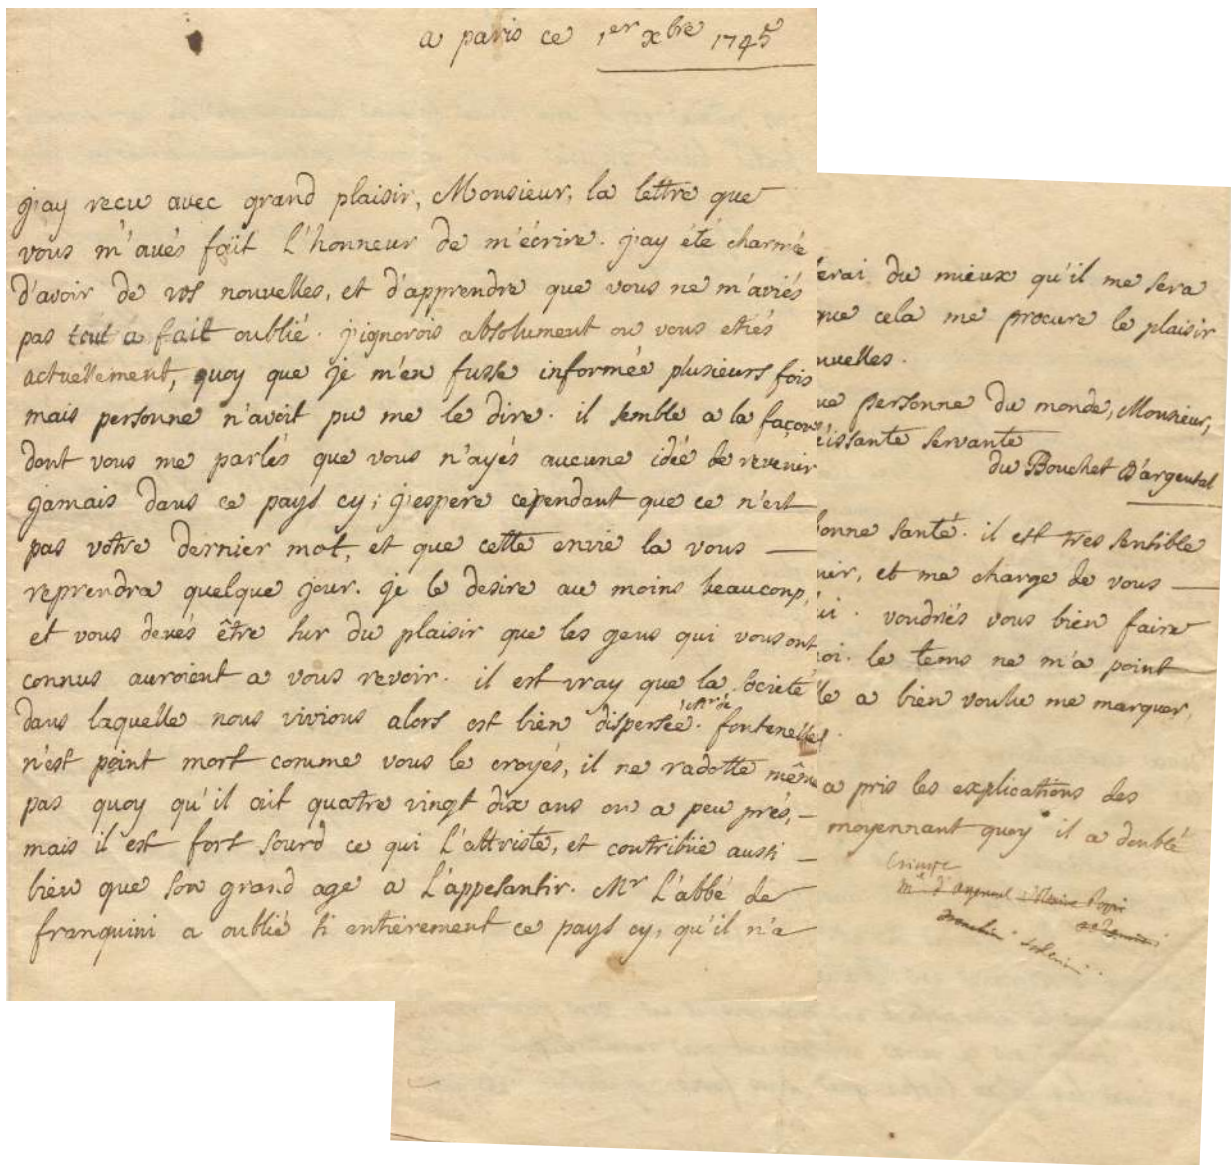 a paris ce 1er xbre 1745
j'ay recu avec grand plaisir, Monsieur, la lettre que
vous m'avés fait l'honneur de m'écrire. j'ay été charmée
d'avoir de vos nouvelles, et d'apprendre que vous ne m'aviés
pas tout a fait oublié. j'ignorois absolument ou vous etiés
actuellement, quoy que je m'en fusse informée plusieurs fois
mais personne n'avoit pu me le dire. il semble a la façon
dont vous me parlés que vous n'ayés aucune idée de revenir
jamais dans ce pays cy; j'espere cependant que ce n'est
pas vôtre dernier mot, et que cette envie la vous —
reprendra quelque jour. je le desire au moins beaucoup,
et vous devés être sur du plaisir que les gens qui vous ont
connus auroient a vous revoir. il est vray que la societé
dans laquelle nous vivions alors est bien dispersée. fontenelles
n'est point mort comme vous le croyés, il ne radotte même
pas quoy qu'il ait quatre vingt dix ans ou a peu prés, —
mais il est fort sourd ce qui l'attriste, et contribue aussi —
bien que son grand age a l'appesantir. Mr l'abbé de
franquini a oublié si entièrement ce pays cy, qu'il n'a
ferai du mieux qu'il me sera
que cela me procure le plaisir
uvelles.
ue personne du monde, Monsieur,
éissante servante
du Bouchet D'argental
bonne santé. il est tres sensible
nir, et me charge de vous —
ui. voudriés vous bien faire
moi. le tems ne m'a point
lle a bien voulu me marquer.
a pris les explications des
moyennant quoy il a doublé